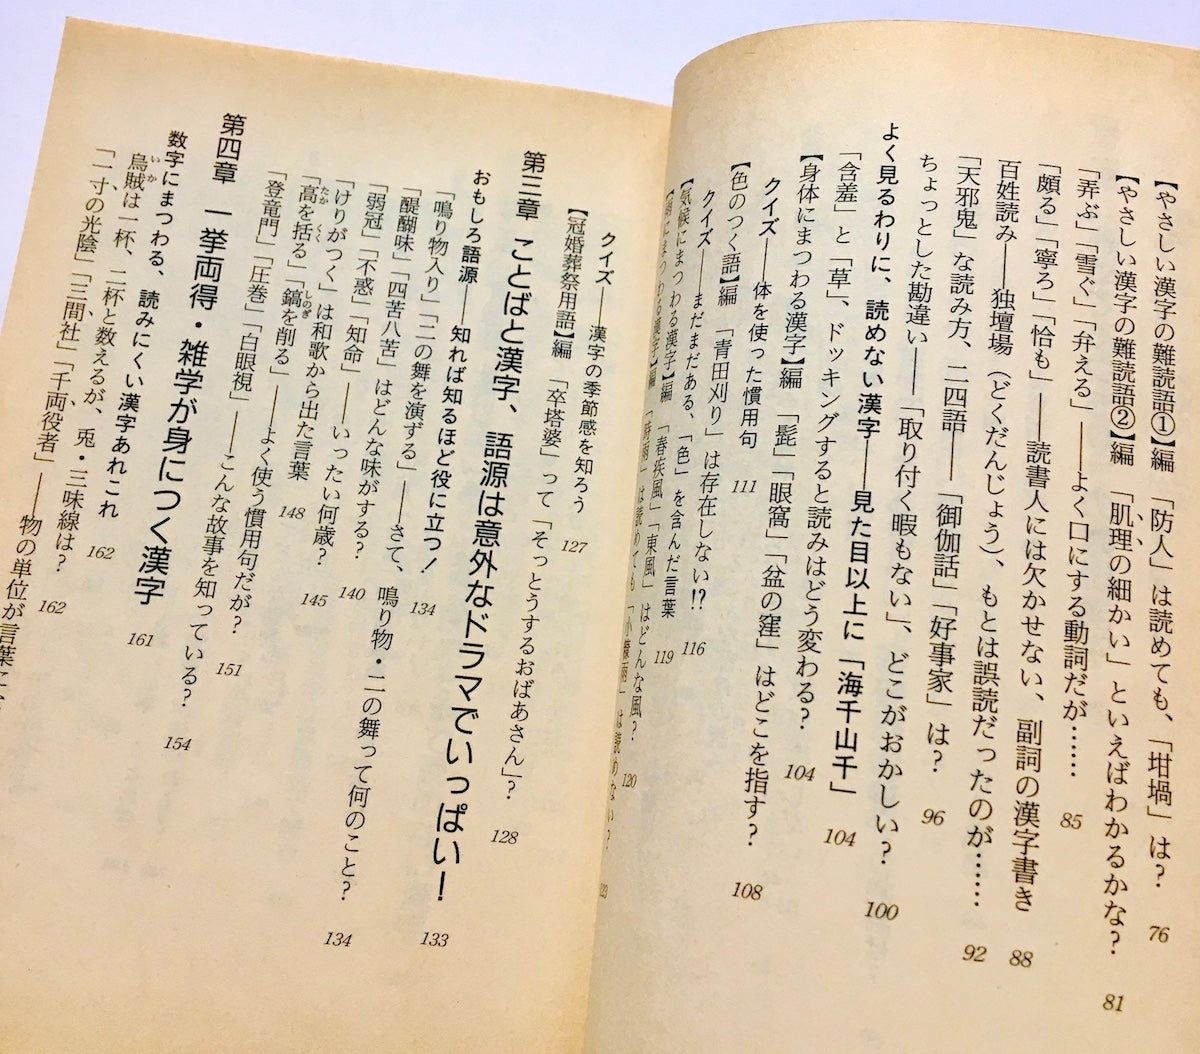 【やさしい漢字の難読語①】編　「防人」は読めても、「坩堝」は？　76
【やさしい漢字の難読語②】編　「肌理の細かい」といえばわかるかな？　81
「弄ぶ」「雪ぐ」「弁える」――よく口にする動詞だが……　85
「頗る」「寧ろ」「恰も」――読書人には欠かせない、副詞の漢字書き　88
百姓読み――独壇場（どくだんじょう）、もとは誤読だったのが……　92
「天邪鬼」な読み方、二四語――「御伽話」「好事家」は？　96
ちょっとした勘違い――「取り付く暇もない」、どこがおかしい？　100
よく見るわりに、読めない漢字――見た目以上に「海千山千」　104
「含羞」と「草」、ドッキングすると読みはどう変わる？　104
【身体にまつわる漢字】編　「髭」「眼窩」「盆の窪」はどこを指す？　108
クイズ――体を使った慣用句　111
【色のつく語】編　「青田刈り」は存在しない!?　116
クイズ――まだまだある、「色」を含んだ言葉　119
【気候にまつわる漢字】編　「春疾風」「東風」はどんな風？　120
にまつわる漢字】編　「時雨」は読めても「小糠雨」は読めない？　123
クイズ――漢字の季節感を知ろう　127
【冠婚葬祭用語】編　「卒塔婆」って「そっとうするおばあさん」？　128
第三章　ことばと漢字、語源は意外なドラマでいっぱい！　133
おもしろ語源――知れば知るほど役に立つ！　134
「鳴り物入り」「二の舞を演ずる」――さて、鳴り物・二の舞って何のこと？　134
「醍醐味」「四苦八苦」はどんな味がする？　140
「弱冠」「不惑」「知命」――いったい何歳？　145
「けりがつく」は和歌から出た言葉　148
「高を括る」「鎬を削る」――よく使う慣用句だが？　151
「登竜門」「圧巻」「白眼視」――こんな故事を知っている？　154
第四章　一挙両得・雑学が身につく漢字　161
数字にまつわる、読みにくい漢字あれこれ　162
烏賊は一杯、二杯と数えるが、兎・三味線は？　162
「一寸の光陰」「三間社」「千両役者」――物の単位が言葉に